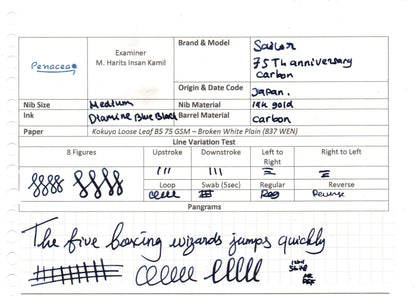 Penacea
Examiner
M. Harits Insan Kamil
Brand & Model
Sailor
75Th anniversary
Carbon
Origin & Date Code
Japan.
Nib Size
Medium
Nib Material
14k gold
Ink
Diamine Blue Black
Barrel Material
Carbon
Paper
Kokuyo Loose Leaf B5 75 GSM – Broken White Plain (837 WEN)
Line Variation Test
8 Figures
Upstroke
Downstroke
Left to Right
Right to Left
Loop
Swab (5sec)
Regular
Reverse
Reg
Reverse
Pangrams
The five boxing wizards jumps quickly